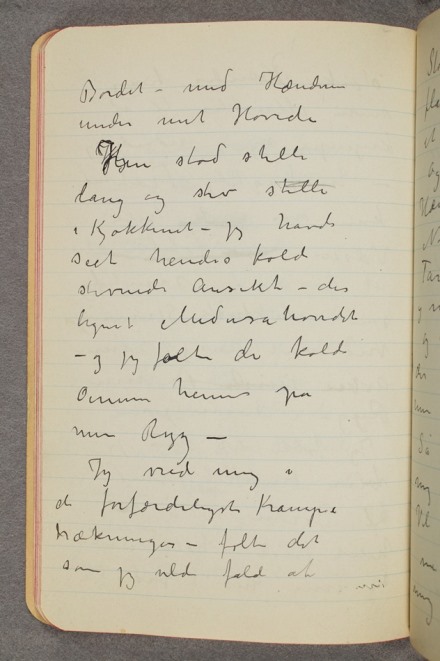 Bordet – med Hænderne
under mit Hovede
Hun stod stille
lang og stiv stille
i Kjøkkenet – jeg havde
seet hendes kolde
stivnede Ansikt – der
lignet Medusahovedet
– og jeg følte de kolde
hennes på
min Ryg –
Jeg vred mig i
de forfærdeligste Krampe
trækninger – følte det
som jeg vilde falde